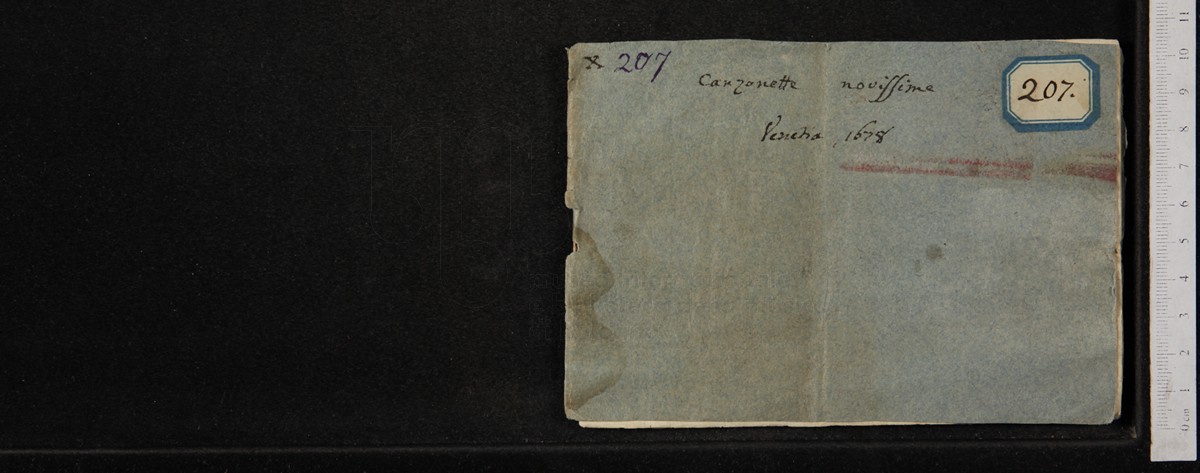 * 207
Canzonette novissime
207.
Venetia 1678
11
10
9
8
7
6
5
4
3
2
1
0 cm